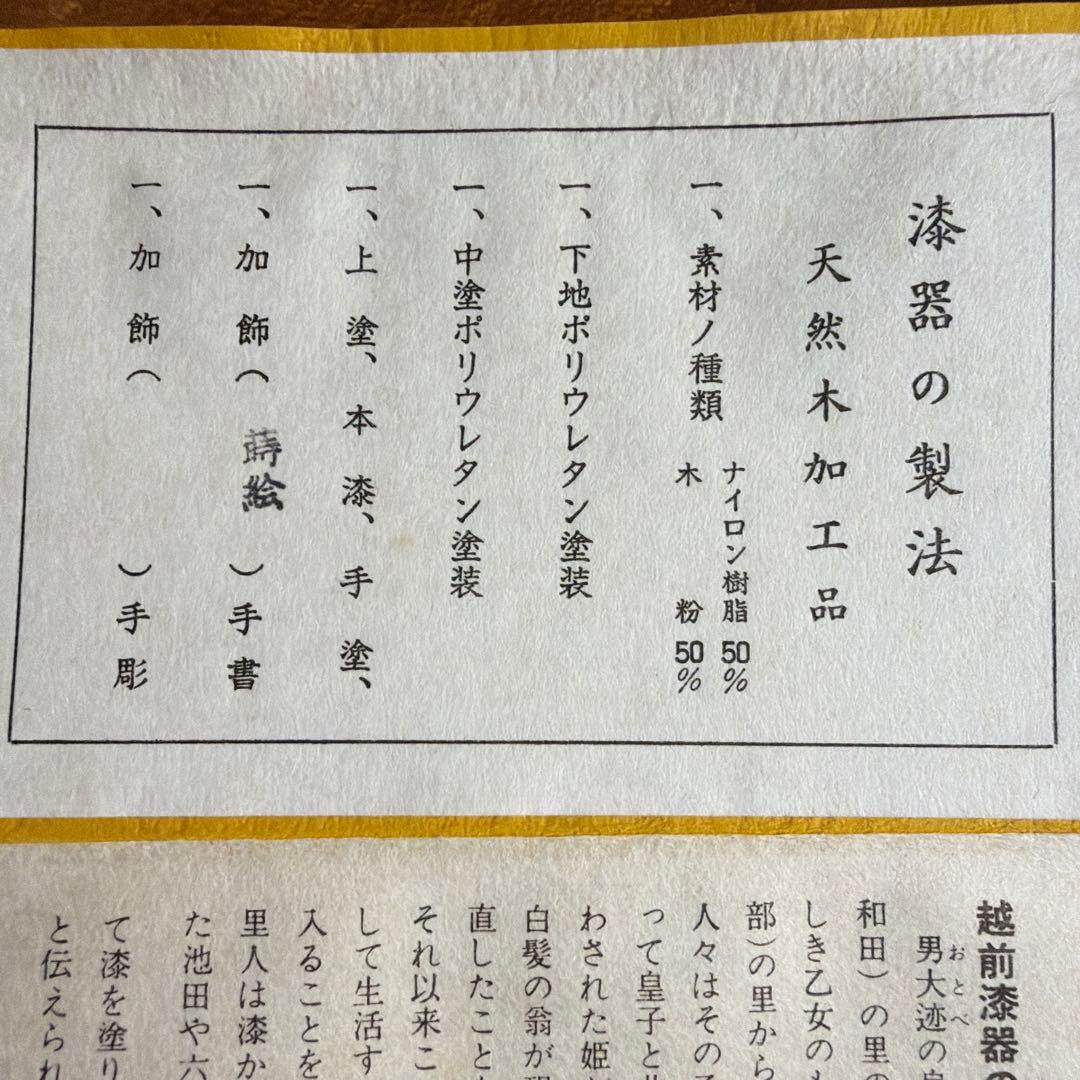 漆器の製法
天然木加工品
一、素材ノ種類
ナイロン樹脂 50%
木粉 50%
一、下地ポリウレタン塗装
一、中塗ポリウレタン塗装
一、上塗、本漆、手塗、
一、加飾(蒔絵)手書
一、加飾( )手彫
越前漆器の
男大迹の
おとべ
和田)の里の
しき乙女の
部)の里から
人々はその
って皇子と
わされた姫
白髪の翁が
直したこと
それ以来こ
して生活す
入ることを
里人は漆か
た池田や六
て漆を塗り
と伝えられ